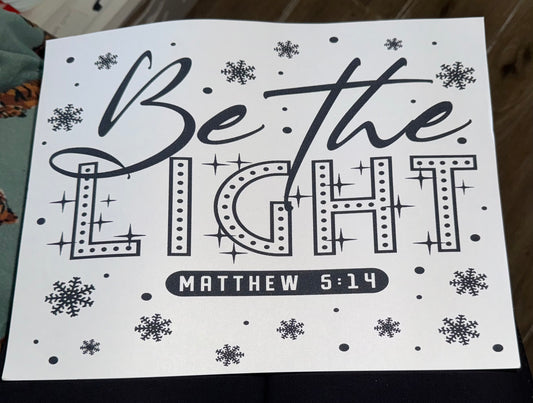 Be The
LIGHT
MATTHEW 5:14